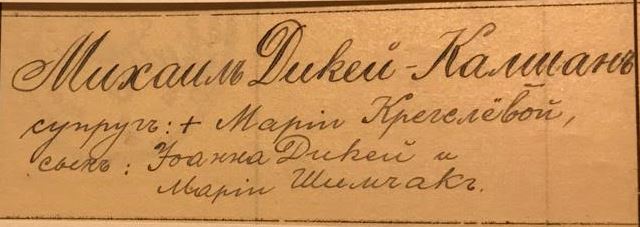 Михаилъ Дикей-Калманъ
супругъ: + Маріи Крегслёвой,
сынъ: Іоанна Дикей и
Маріи Шимчакъ.